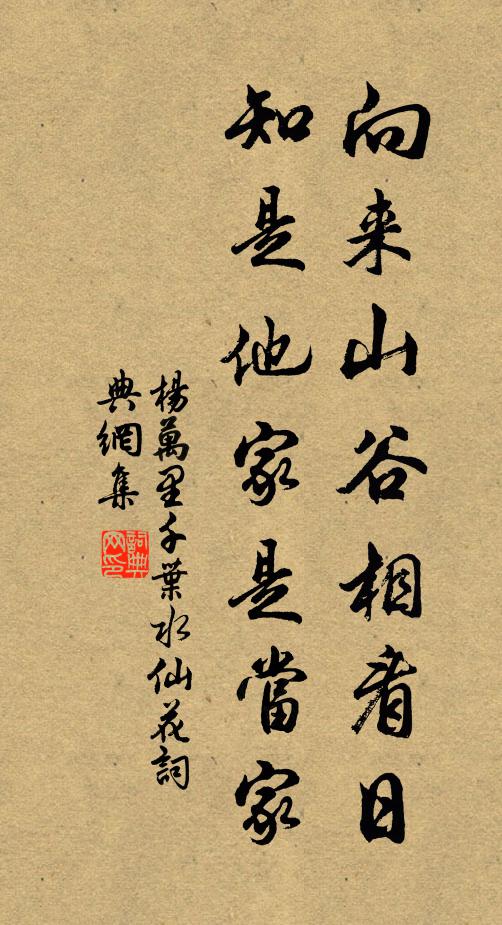 向来山谷相看日
知是他家是當家
楊萬里千葉水仙花詞
典網集
詞典网印